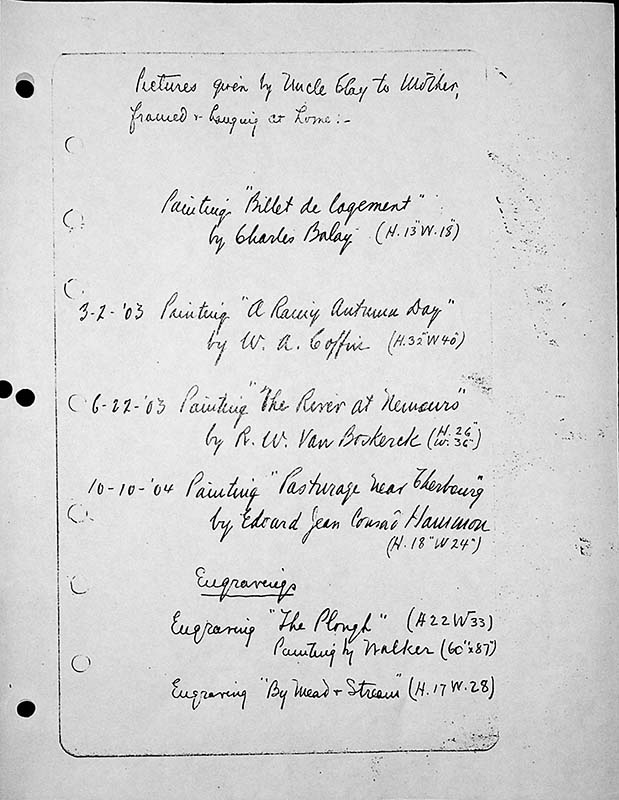 Pictures given by Uncle Clay to Mother,
framed + hanging at home:-
Painting "Billet de logement"
by Charles Balay (H. 13" W. 18")
3-2-'03 Painting "A Rainy Autumn Day"
by W. A. Coffin (H. 32" W 40")
6-22-'03 Painting "The River at Nemours"
by R. W. Van Boskerck (H. 26" W. 36")
10-10-'04 Painting "Pasturage near Cherbourg"
by Edouard Jean Conrad Hamman
(H. 18" W 24")
Engravings
Engraving "The Plough" (H 22 W 33)
Painting by Walker (60" x 87")
Engraving "By Mead + Stream" (H. 17 W. 28)